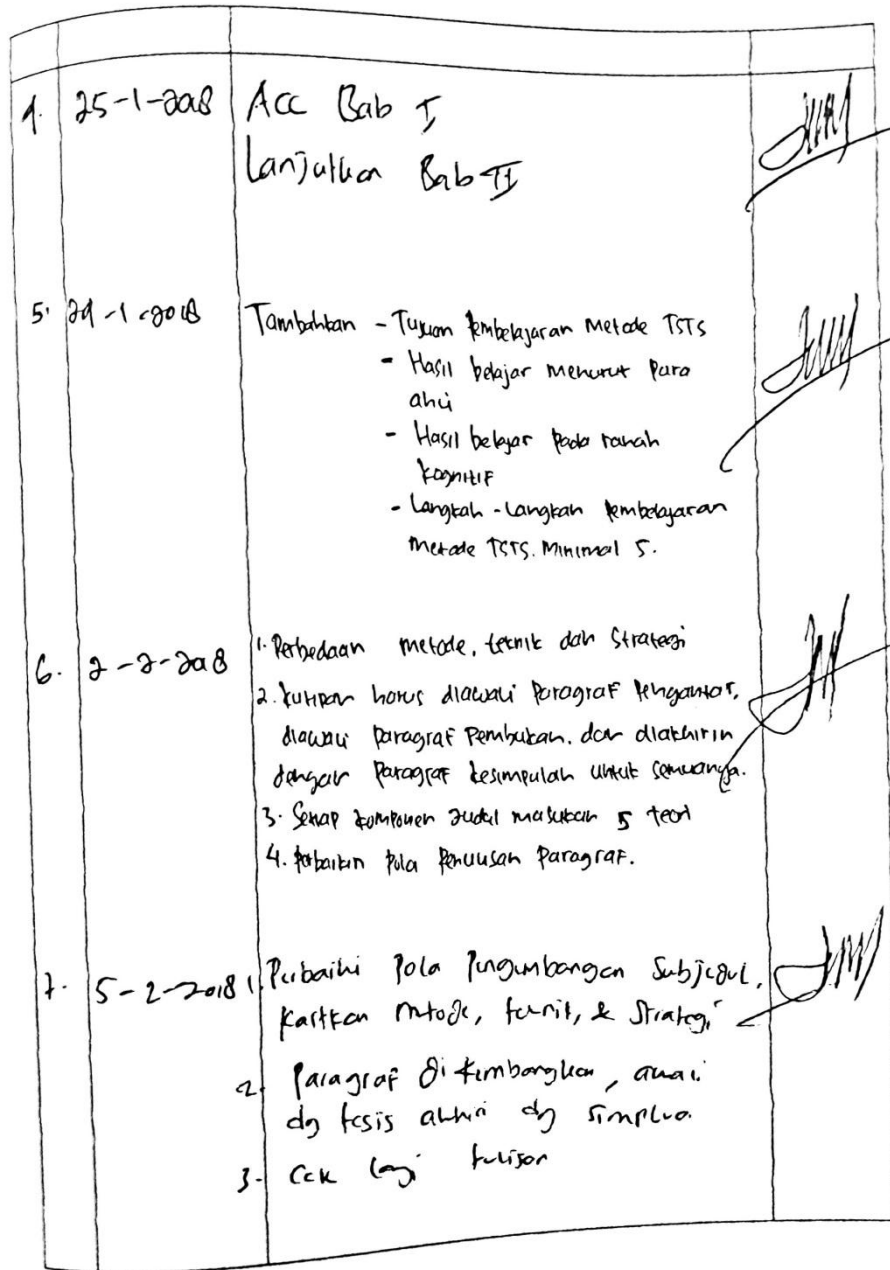 4. 25-1-2018 Acc Bab I
Lanjutkan Bab II
5. 29-1-2018 Tambahkan - Tujuan Pembelajaran Metode TSTS
- Hasil belajar menurut para
ahli
- Hasil belajar pada ranah
kognitif
- Langkah-Langkah Pembelajaran
Metode TSTS. Minimal 5.
6. 2-2-2018 1. Perbedaan metode, teknik dan Strategi
2. kutipan harus diawali Paragraf Pengantar,
diawali Paragraf Pembukan. dan diakhirin
dengan Paragraf kesimpulan untuk semuanya.
3. Setiap komponen Judul masukan 5 teori
4. Perbaikin Pola Penulisan Paragraf.
7. 5-2-2018 1. Perbaiki Pola Pengembangan Subjudul,
kaitkan metode, teknik, & Strategi
2. Paragraf di kembangkan, awali
dg tesis akhiri dg simpulan
3. Cek lagi tulisan